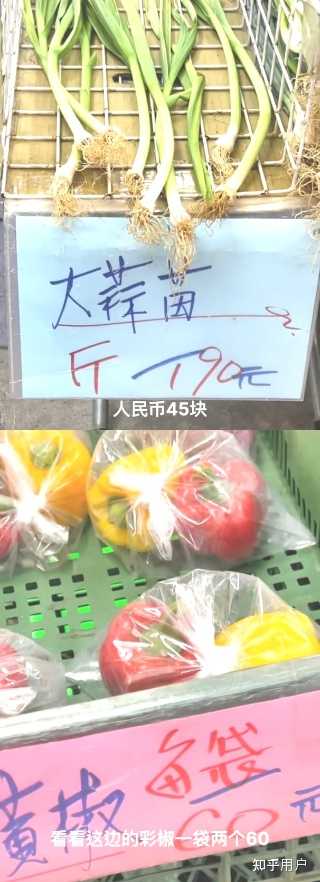 大蒜苗
斤190元
人民币45块
每袋
黄椒 60元
看看这边的彩椒一袋两个60
知乎用户